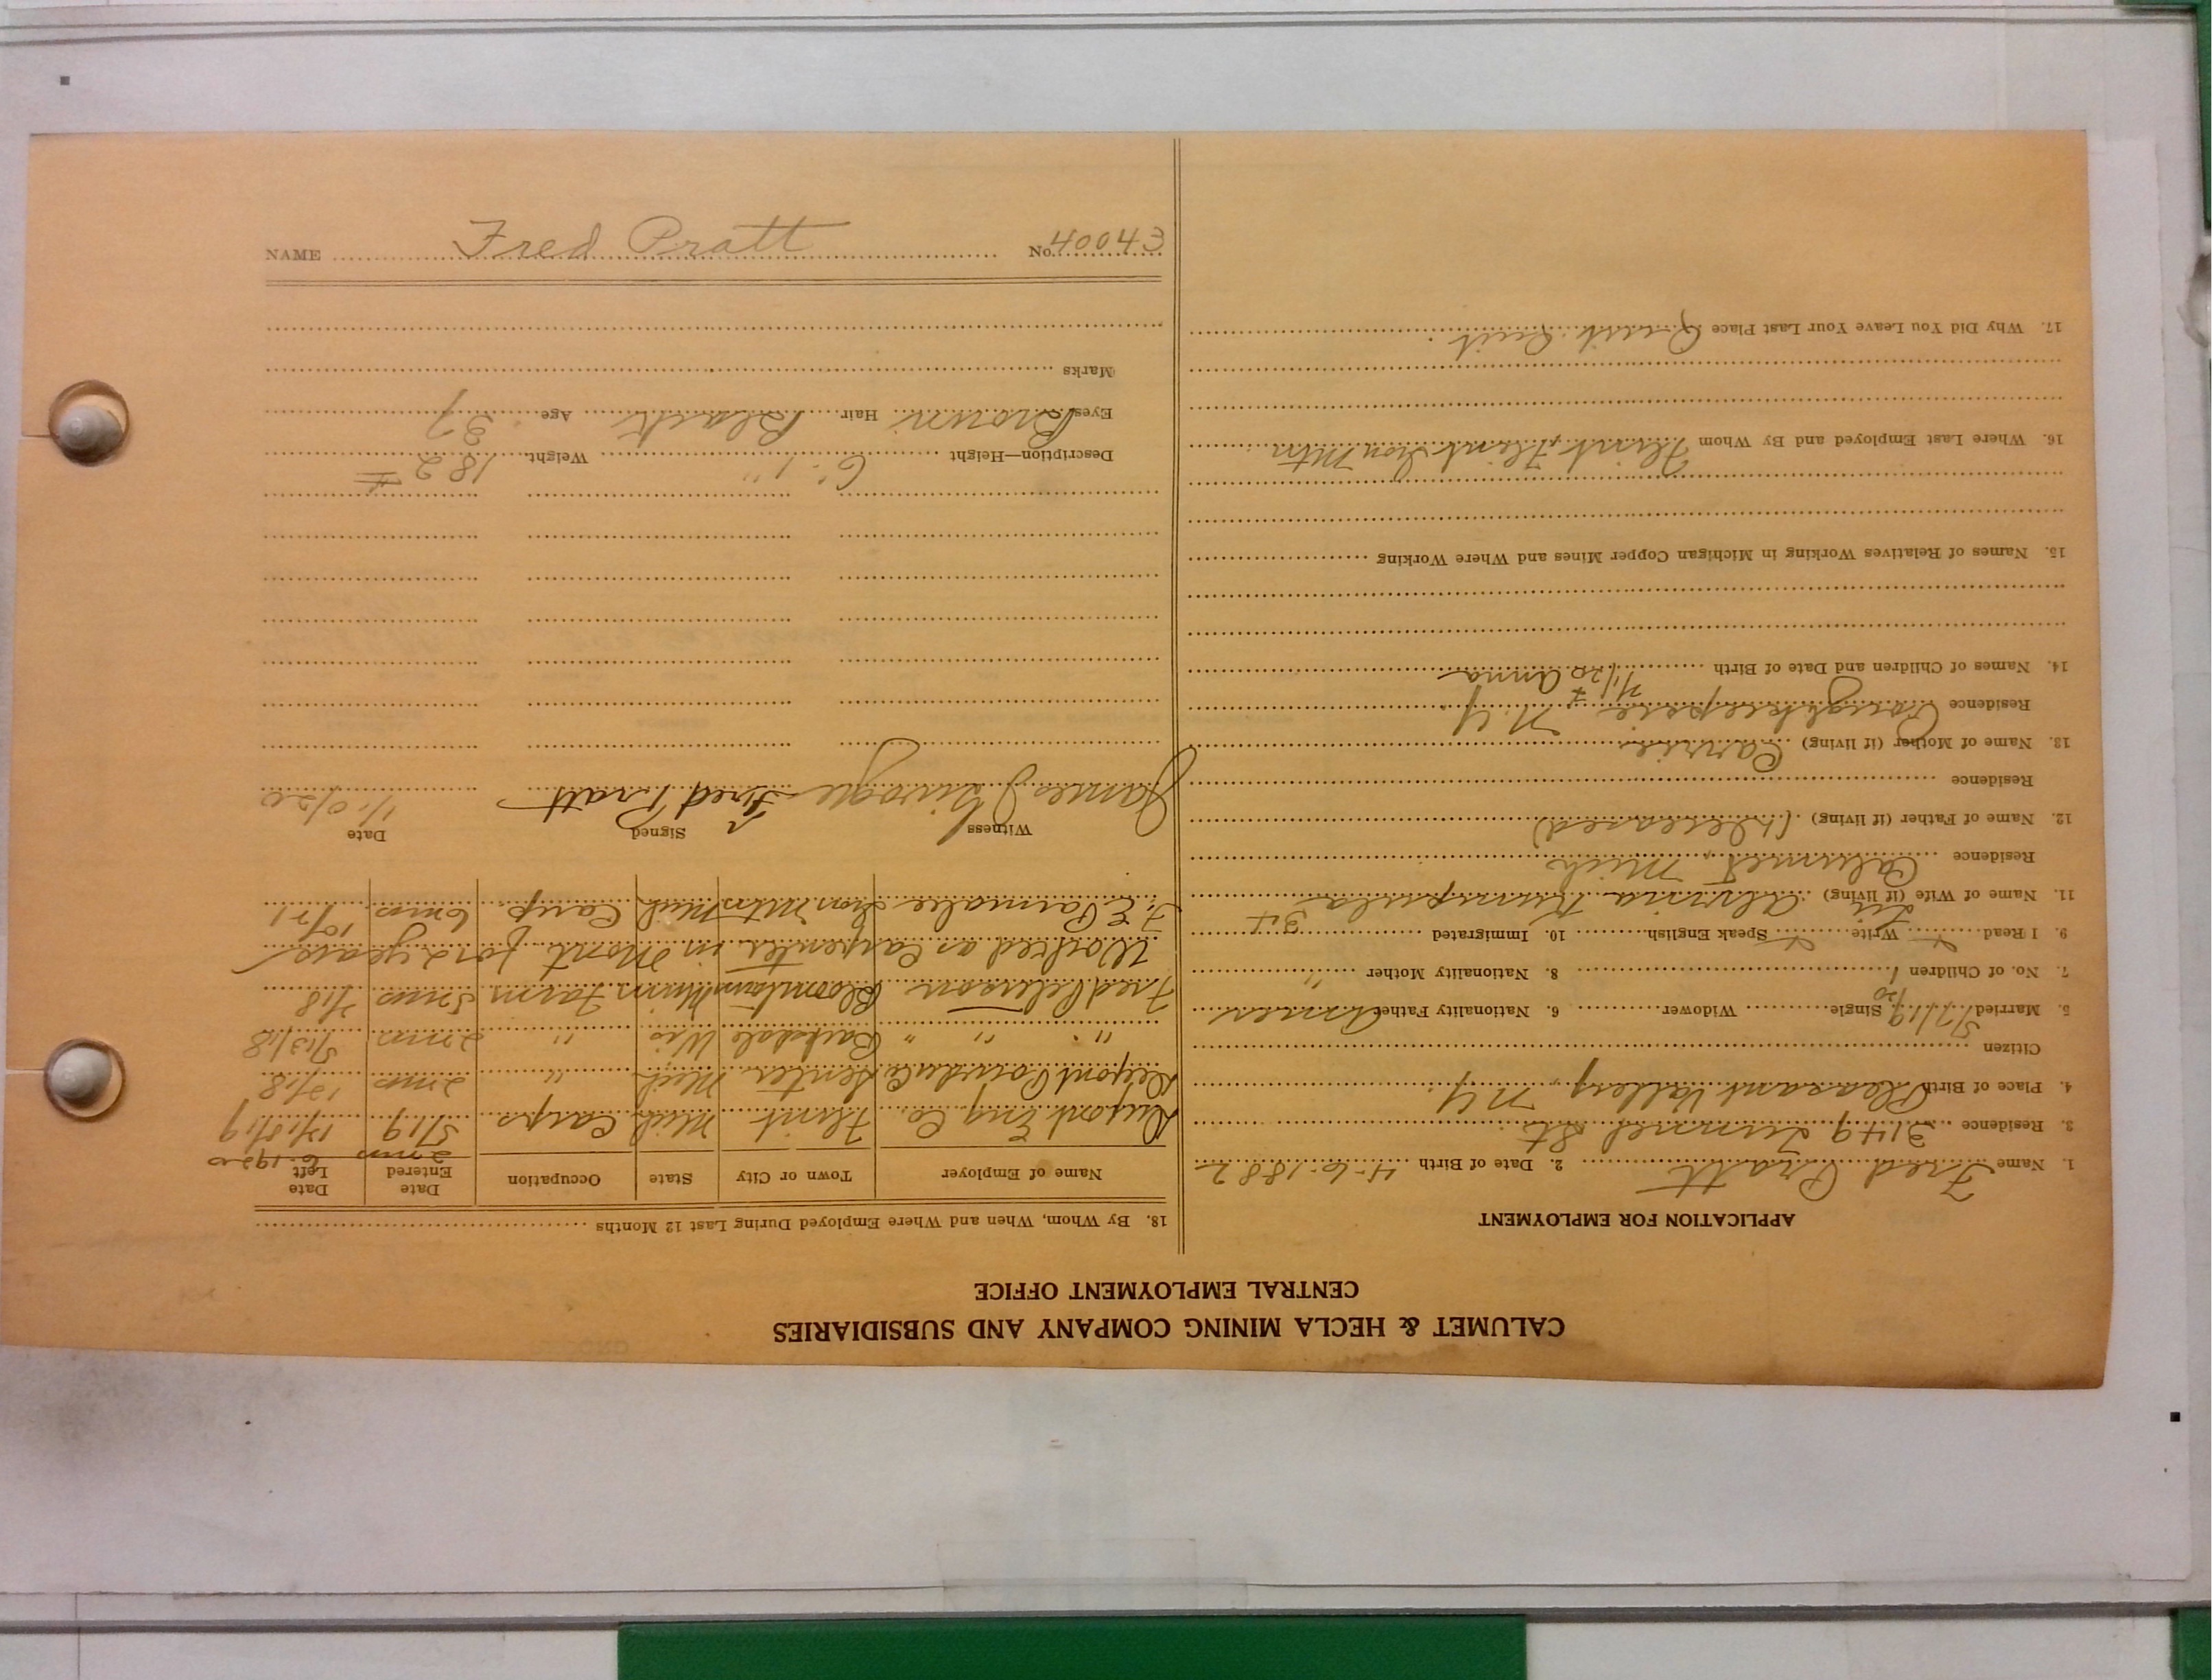 CALUMET & HECLA MINING COMPANY AND SUBSIDIARIES
CENTRAL EMPLOYMENT OFFICE
APPLICATION FOR EMPLOYMENT
1. Name Fred Pratt 2. Date of Birth 4-6-1882
3. Residence 3149 Tunnel St.
4. Place of Birth Pleasant Valley, N.Y.
Citizen
5. Married 5/7/19 Single Widower 6. Nationality Father Amer
7. No. of Children 1 8. Nationality Mother "
9. I Read Write Speak English 10. Immigrated
11. Name of Wife (if living) Alvina 34
Residence Calumet, Mich
12. Name of Father (if living) (Deceased)
Residence
13. Name of Mother (if living) Carrie
Residence Poughkeepsie N.Y.
14. Names of Children and Date of Birth Anna
15. Names of Relatives Working in Michigan Copper Mines and Where Working
16. Where Last Employed and By Whom Flint, Flint Iron Mtn
17. Why Did You Leave Your Last Place Quit. Quit.
18. By Whom, When and Where Employed During Last 12 Months
Name of Employer Town or City State Occupation Date Entered Date Left
2 mos 6-1920
Dupont Eng Co. Flint Mich Carp 5/19
Dupont Powder Co. Senter Mich " 2 mos 12/18
" " " Barksdale Wis " 2 mos 5/13/18
Fred Peterson Minn Farm 5 mos
Worked as Carpenter in Mont for 2 years
F. E. Parmalee Iron Mtn Mich Carp 6 mos 10/21
Witness Signed Date
James Fred Pratt
Description—Height 6' 1" Weight 182 #
Eyes Brown Hair Black Age 37
Marks
NAME Fred Pratt No. 40043